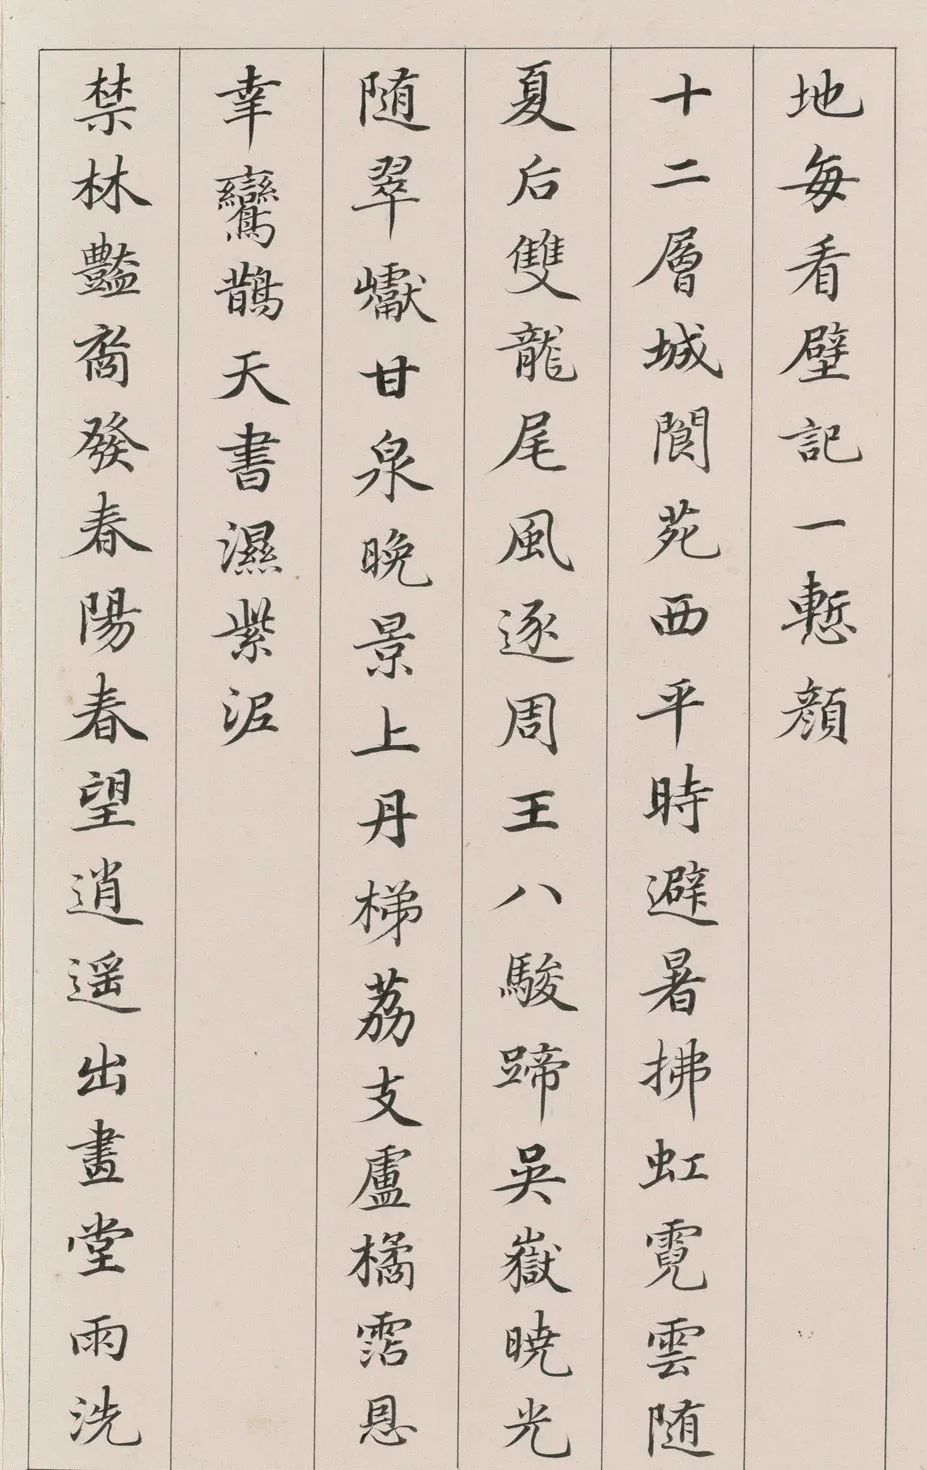 地每看壁記一慙顔
十二層城閬苑西平時避暑拂虹霓雲随
夏后雙龍尾風逐周王八駿蹄吳嶽曉光
随翠巘甘泉晚景上丹梯荔支盧橘霑恩
幸鸞鵲天書濕紫泥
禁林豔裔發春陽春望逍遥出畫堂雨洗